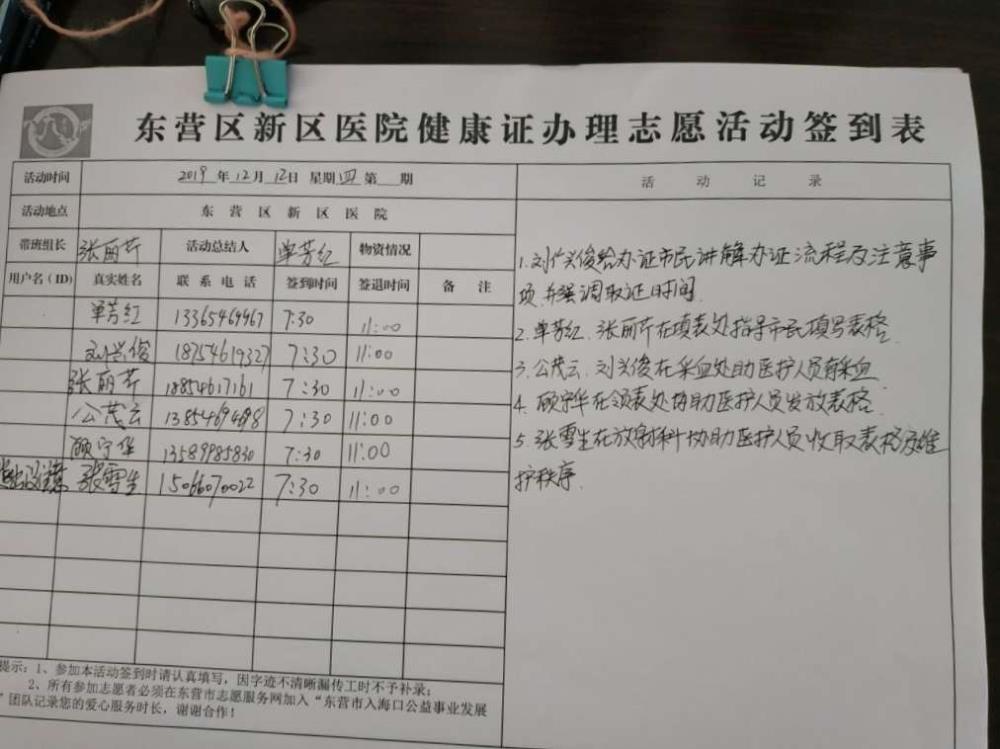 东营区新区医院健康证办理志愿活动签到表
活动时间 2019年12月12日 星期四 第 期
活动地点 东营区新区医院
带班组长 张丽芹 活动总结人 单芳红 物资情况
用户名（ID） 真实姓名 联系电话 签到时间 签退时间 备注
单芳红 13365469467 7:30 11:00
刘兴俊 18754619327 7:30 11:00
张丽芹 18854617161 7:30 11:00
公茂云 13854694698 7:30 11:00
顾宁华 13589985830 7:30 11:00
张雪生 15066070022 7:30 11:00
提示：1、参加本活动签到时请认真填写，因字迹不清晰漏传工时不予补录；
2、所有参加志愿者必须在东营市志愿服务网加入“东营市入海口公益事业发展
”团队记录您的爱心服务时长，谢谢合作！
活动记录
1.刘兴俊给办证市民讲解办证流程及注意事
项，并强调取证时间.
2.单芳红、张丽芹在填表处指导市民填写表格.
3.公茂云、刘兴俊在采血处助医护人员采血.
4.顾宁华在领表处协助医护人员发放表格.
5.张雪生在放射科协助医护人员收取表格及维
护秩序.